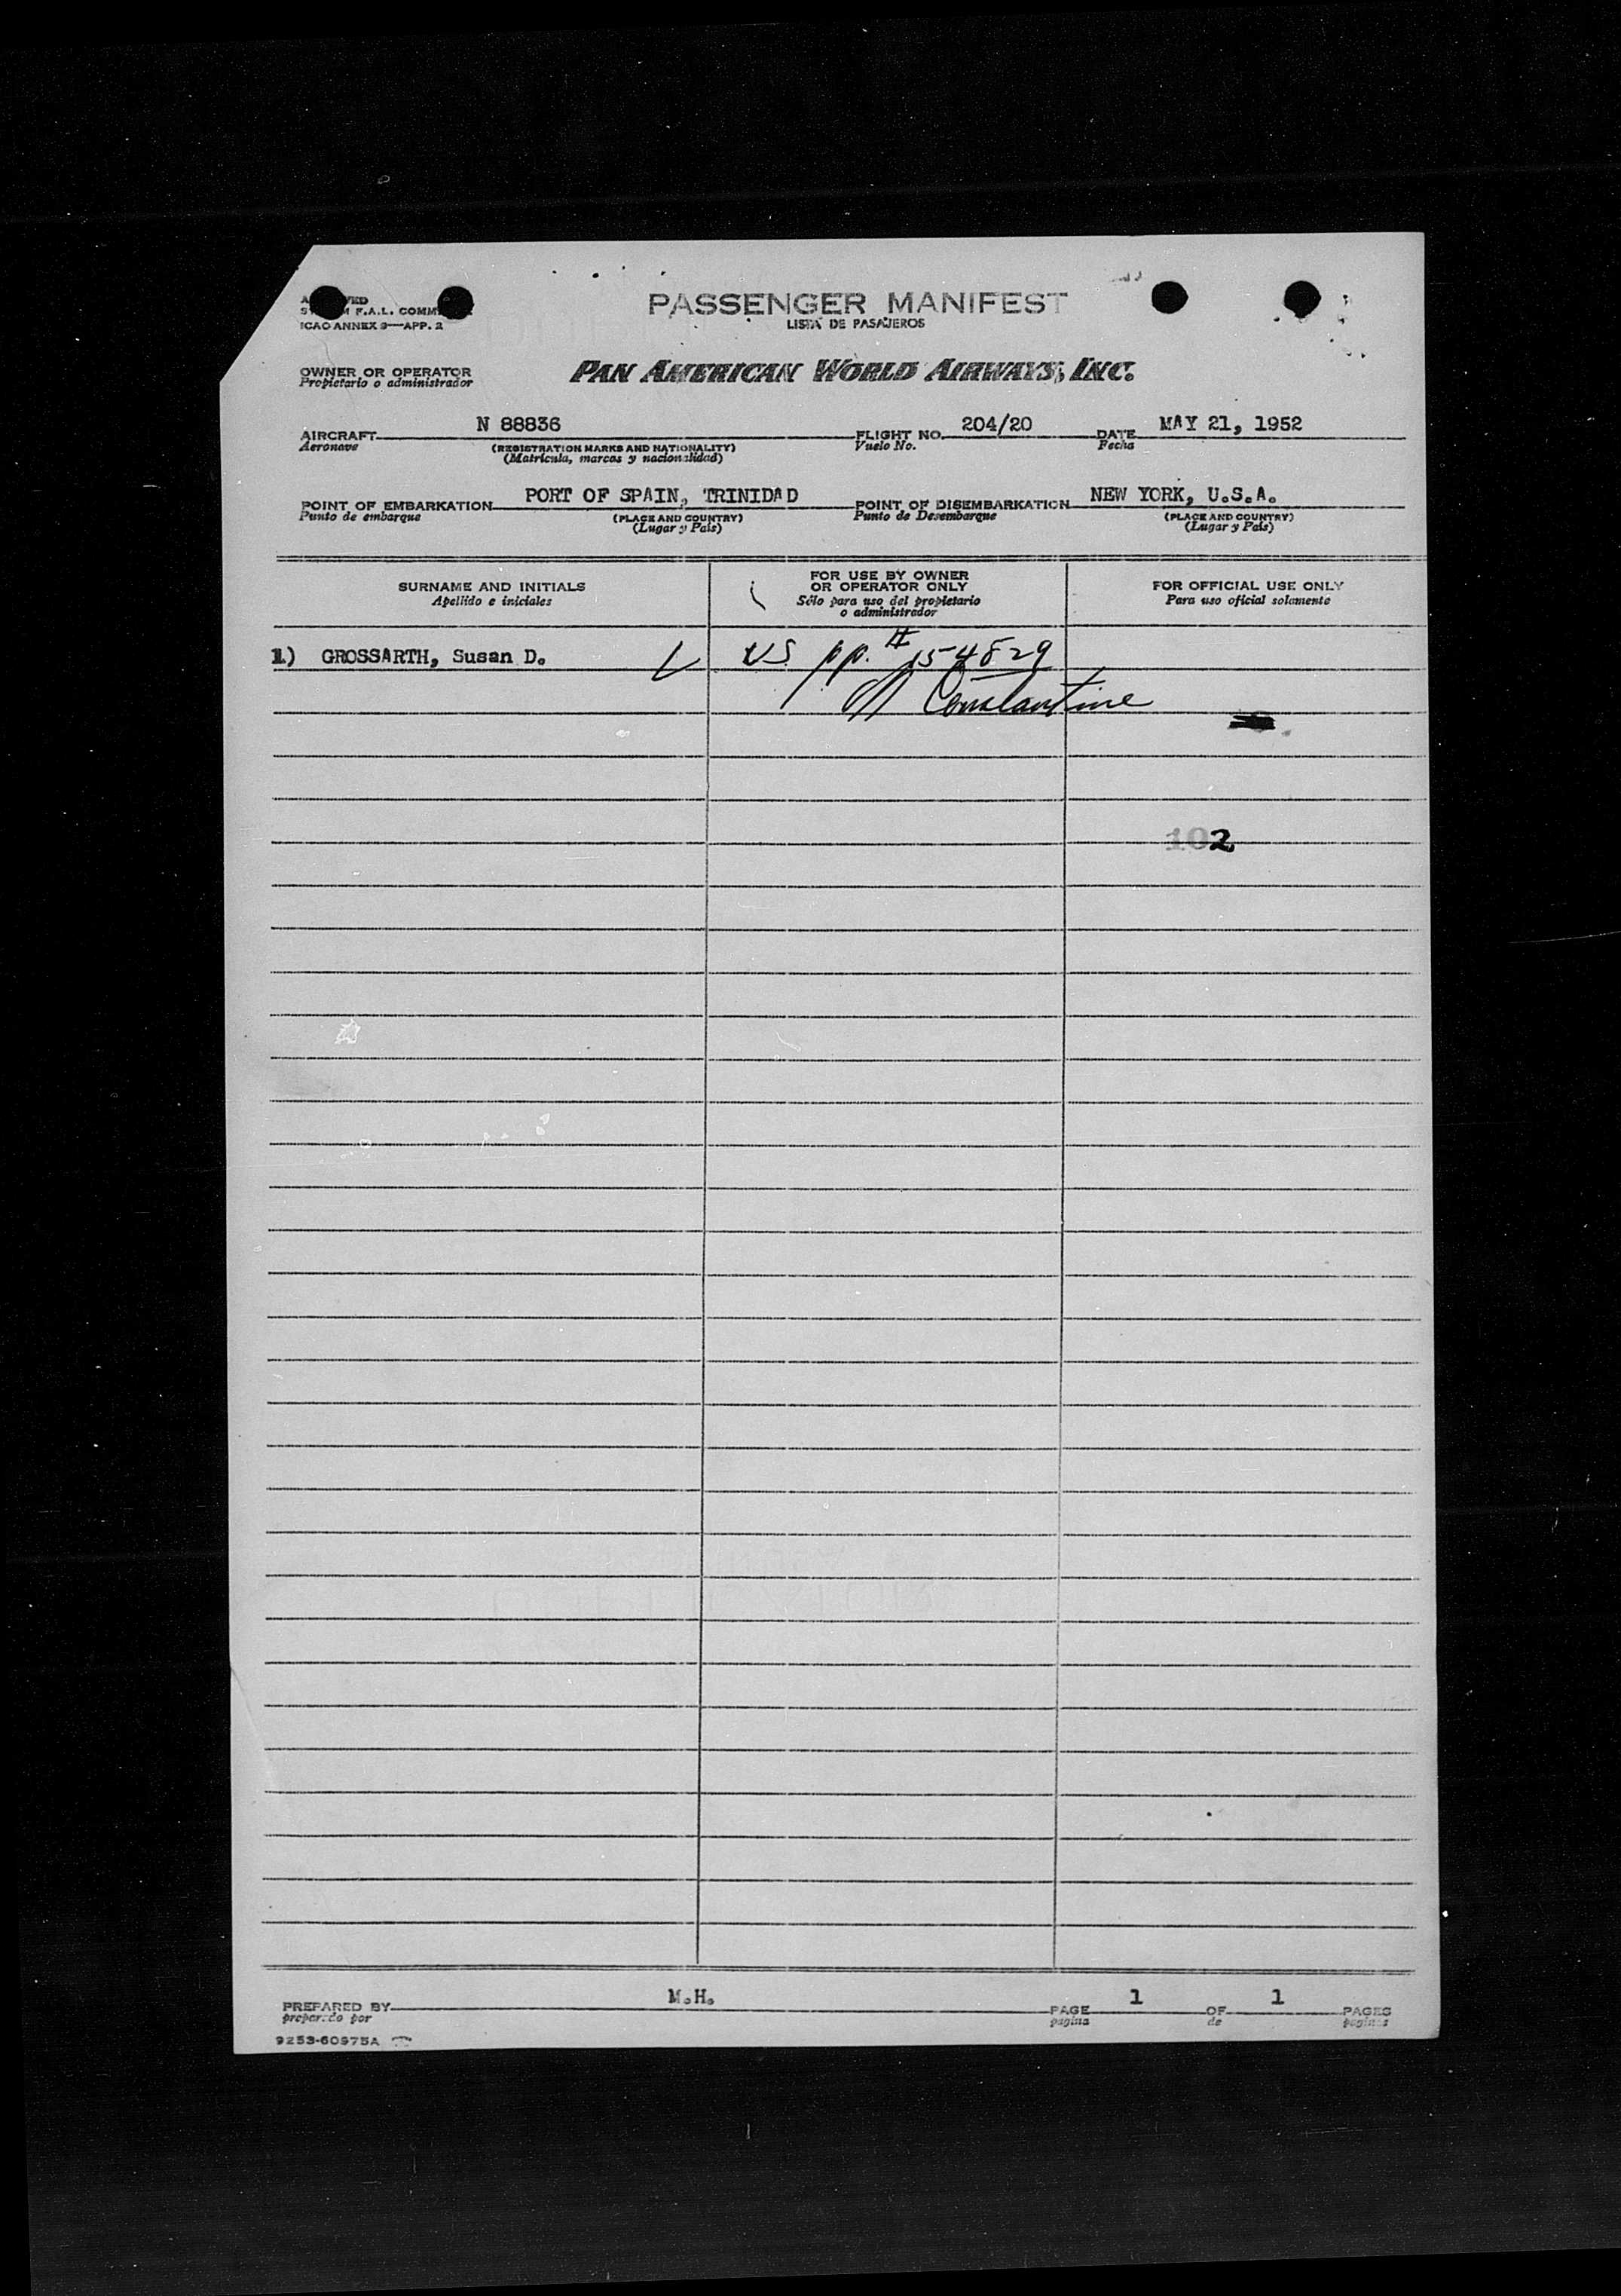 PASSENGER MANIFEST
LISTA DE PASAJEROS
F.A.L. COMM
ICAO ANNEX 9—APP. 2
OWNER OR OPERATOR
Propietario o administrador
PAN AMERICAN WORLD AIRWAYS, INC.
AIRCRAFT N 88836 FLIGHT NO. 204/20 DATE MAY 21, 1952
Aeronave (REGISTRATION MARKS AND NATIONALITY) Vuelo No. Fecha
(Matrícula, marcas y nacionalidad)
POINT OF EMBARKATION PORT OF SPAIN, TRINIDAD POINT OF DISEMBARKATION NEW YORK, U.S.A.
Punto de embarque (PLACE AND COUNTRY) Punto de Desembarque (PLACE AND COUNTRY)
(Lugar y País) (Lugar y País)
SURNAME AND INITIALS
Apellido e iniciales
FOR USE BY OWNER
OR OPERATOR ONLY
Sólo para uso del propietario
o administrador
FOR OFFICIAL USE ONLY
Para uso oficial solamente
1) GROSSARTH, Susan D. US pp. # 154829
Constantine
102
PREPARED BY M.H. PAGE 1 OF 1 PAGES
preparado por pagina de paginas
9253-60975A